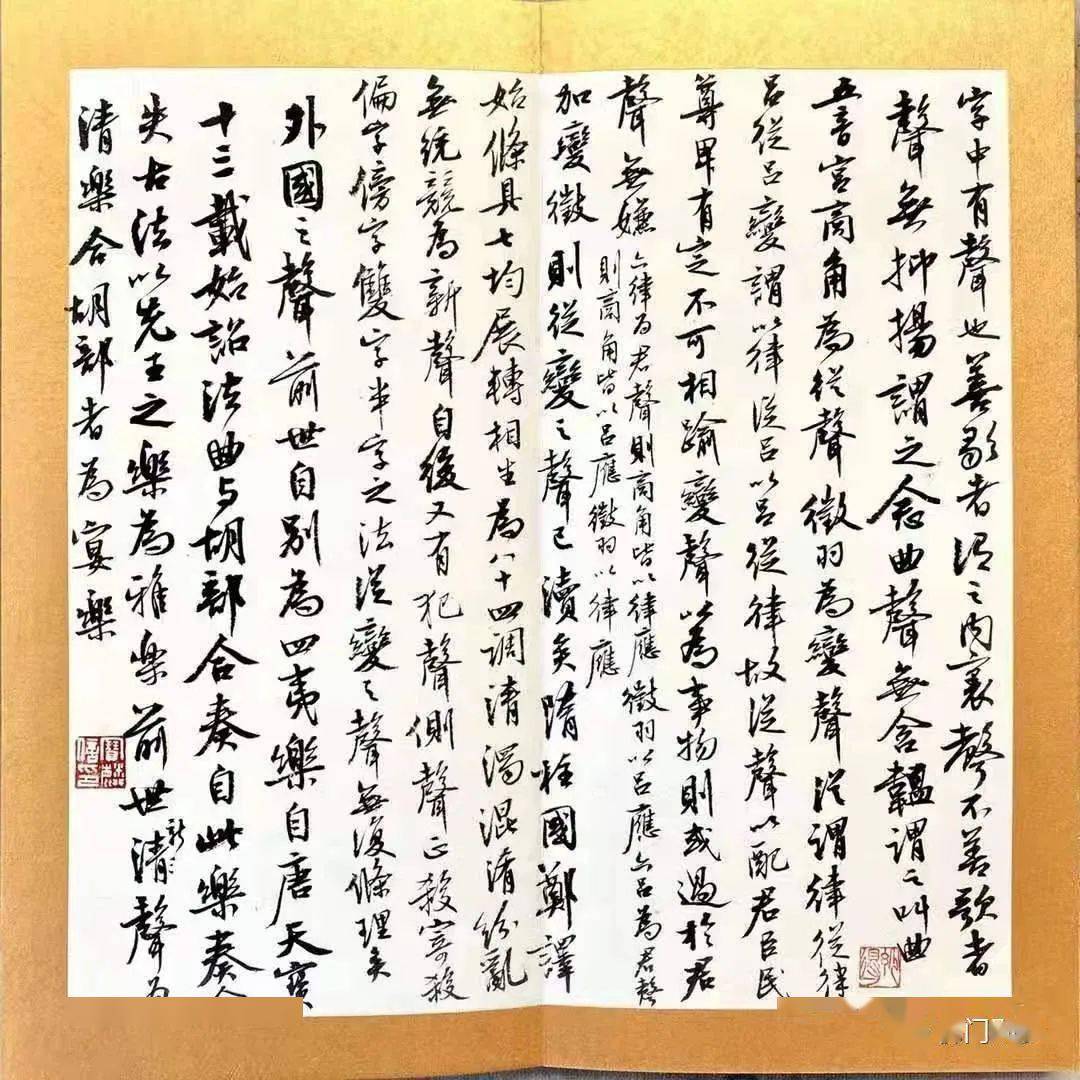 字中有聲也善歌者謂之内裏聲不善歌者
聲無抑揚謂之念曲聲無含韞謂之叫曲
五音宮商角為從聲徵羽為變聲從謂律從律
呂從呂變謂以律從呂以呂從律故從聲以配君臣民
尊卑有定不可相踰變聲以為事物則或過於君
聲無嫌
六律为君聲則商角皆以律應徵羽以呂應六呂為君聲
則商角皆以呂應徵羽以律應
加變徵則從變之聲已瀆矣隋柱國鄭譯
始條具七均展轉相生為八十四調清濁混淆紛亂
無統競為新聲自後又有犯聲側聲正殺寄殺
偏字傍字雙字半字之法從變之聲無復條理矣
外國之聲前世自别為四夷樂自唐天寶
十三載始詔法曲与胡部合奏自此樂奏全
失古法以先王之樂為雅樂前世清聲为
新
清樂合胡部者為宴樂
门